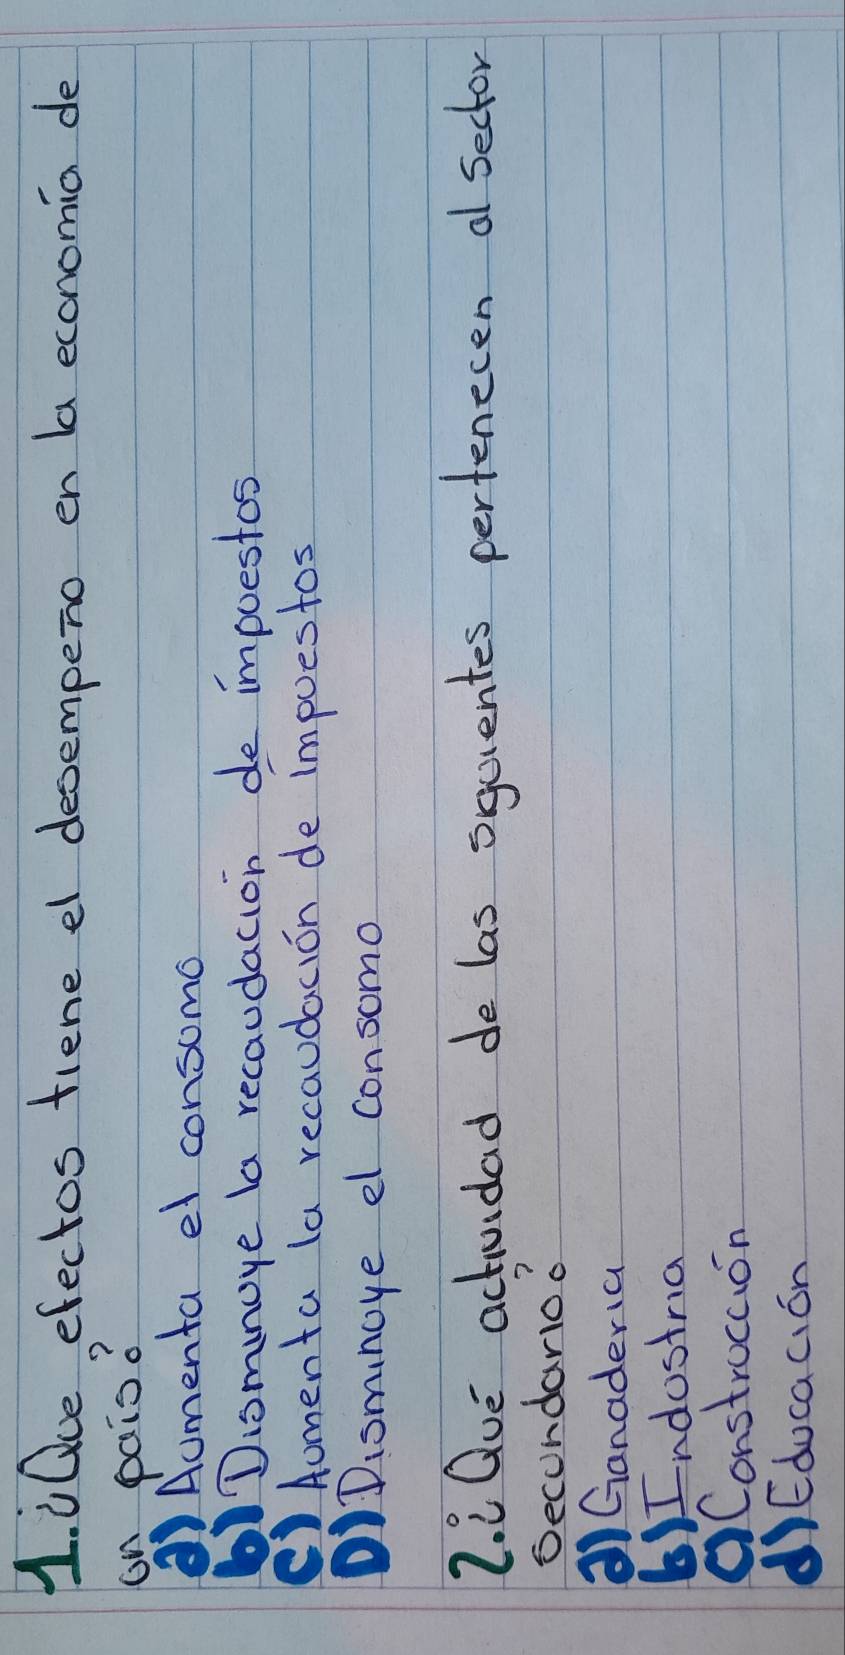 1.¿Que efectos tiene el desempeño en la economía de
un país?
a) Aumenta el consumo
b) Disminuye la recaudación de impuestos
c) Aumenta la recaudación de impuestos
D) Disminuye el consumo
2.¿Qué actividad de las siguientes pertenecen al sector
secundario?
a) Ganaderia
b) Industria
c) Construcción
d) Educación